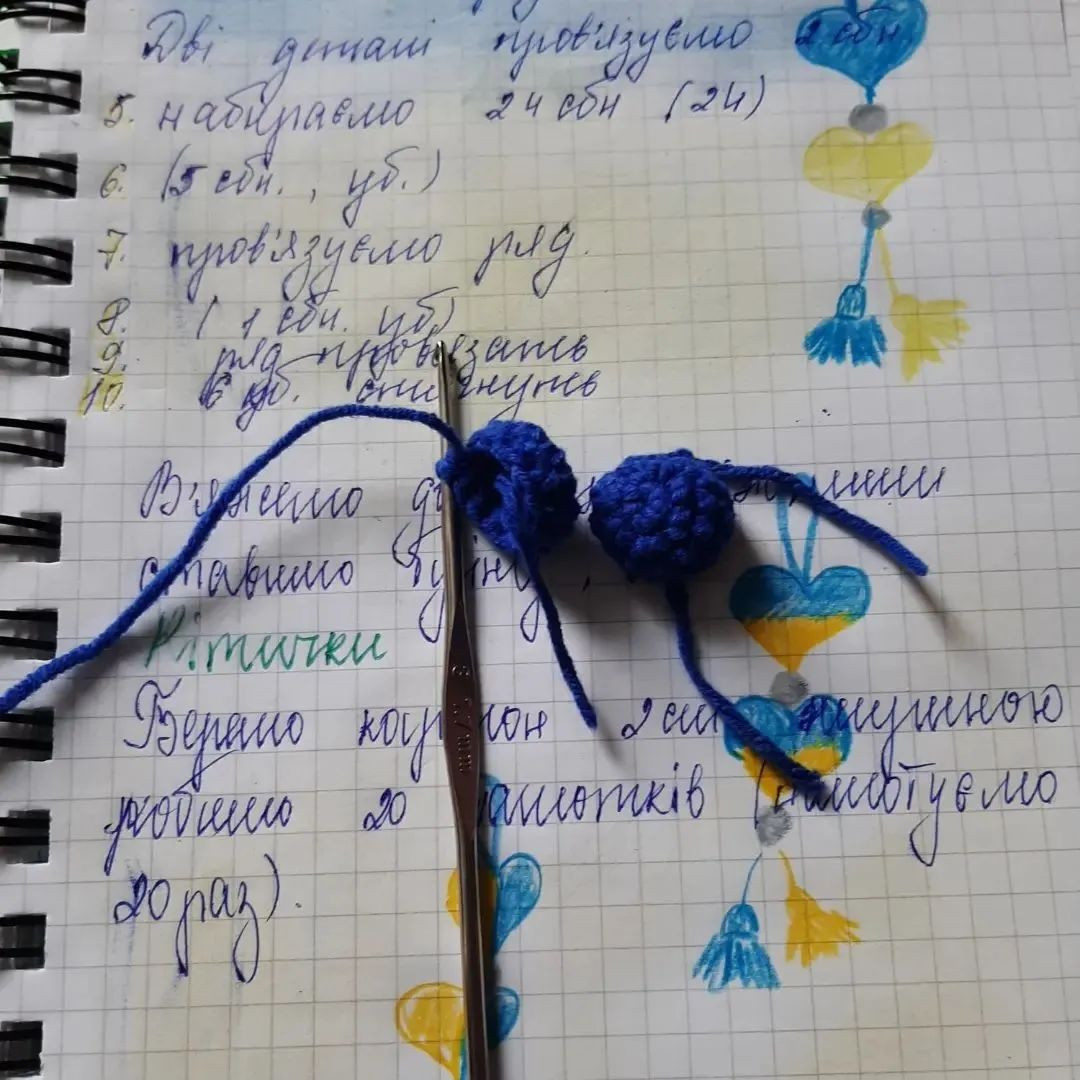 Дві деталі пров'язуємо 2 сбн
5. набираємо 24 сбн (24)
6. (5 сбн., уб.)
7. пров'язуємо ряд.
8. (1 сбн. уб)
9. ряд пров'язать
10. 6 уб. стягнуть
В'яжемо
ставимо
Китички
Беремо картон 2 см
робимо 20 намотків (намотуємо
20 раз).
3 2,7mm